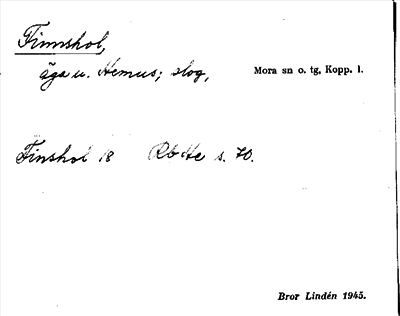 Finnshol,
äga u. Hemus; skog,
Mora sn o. tg, Kopp. l.
Finshol 18 Rb He s. 70.
Bror Lindén 1945.